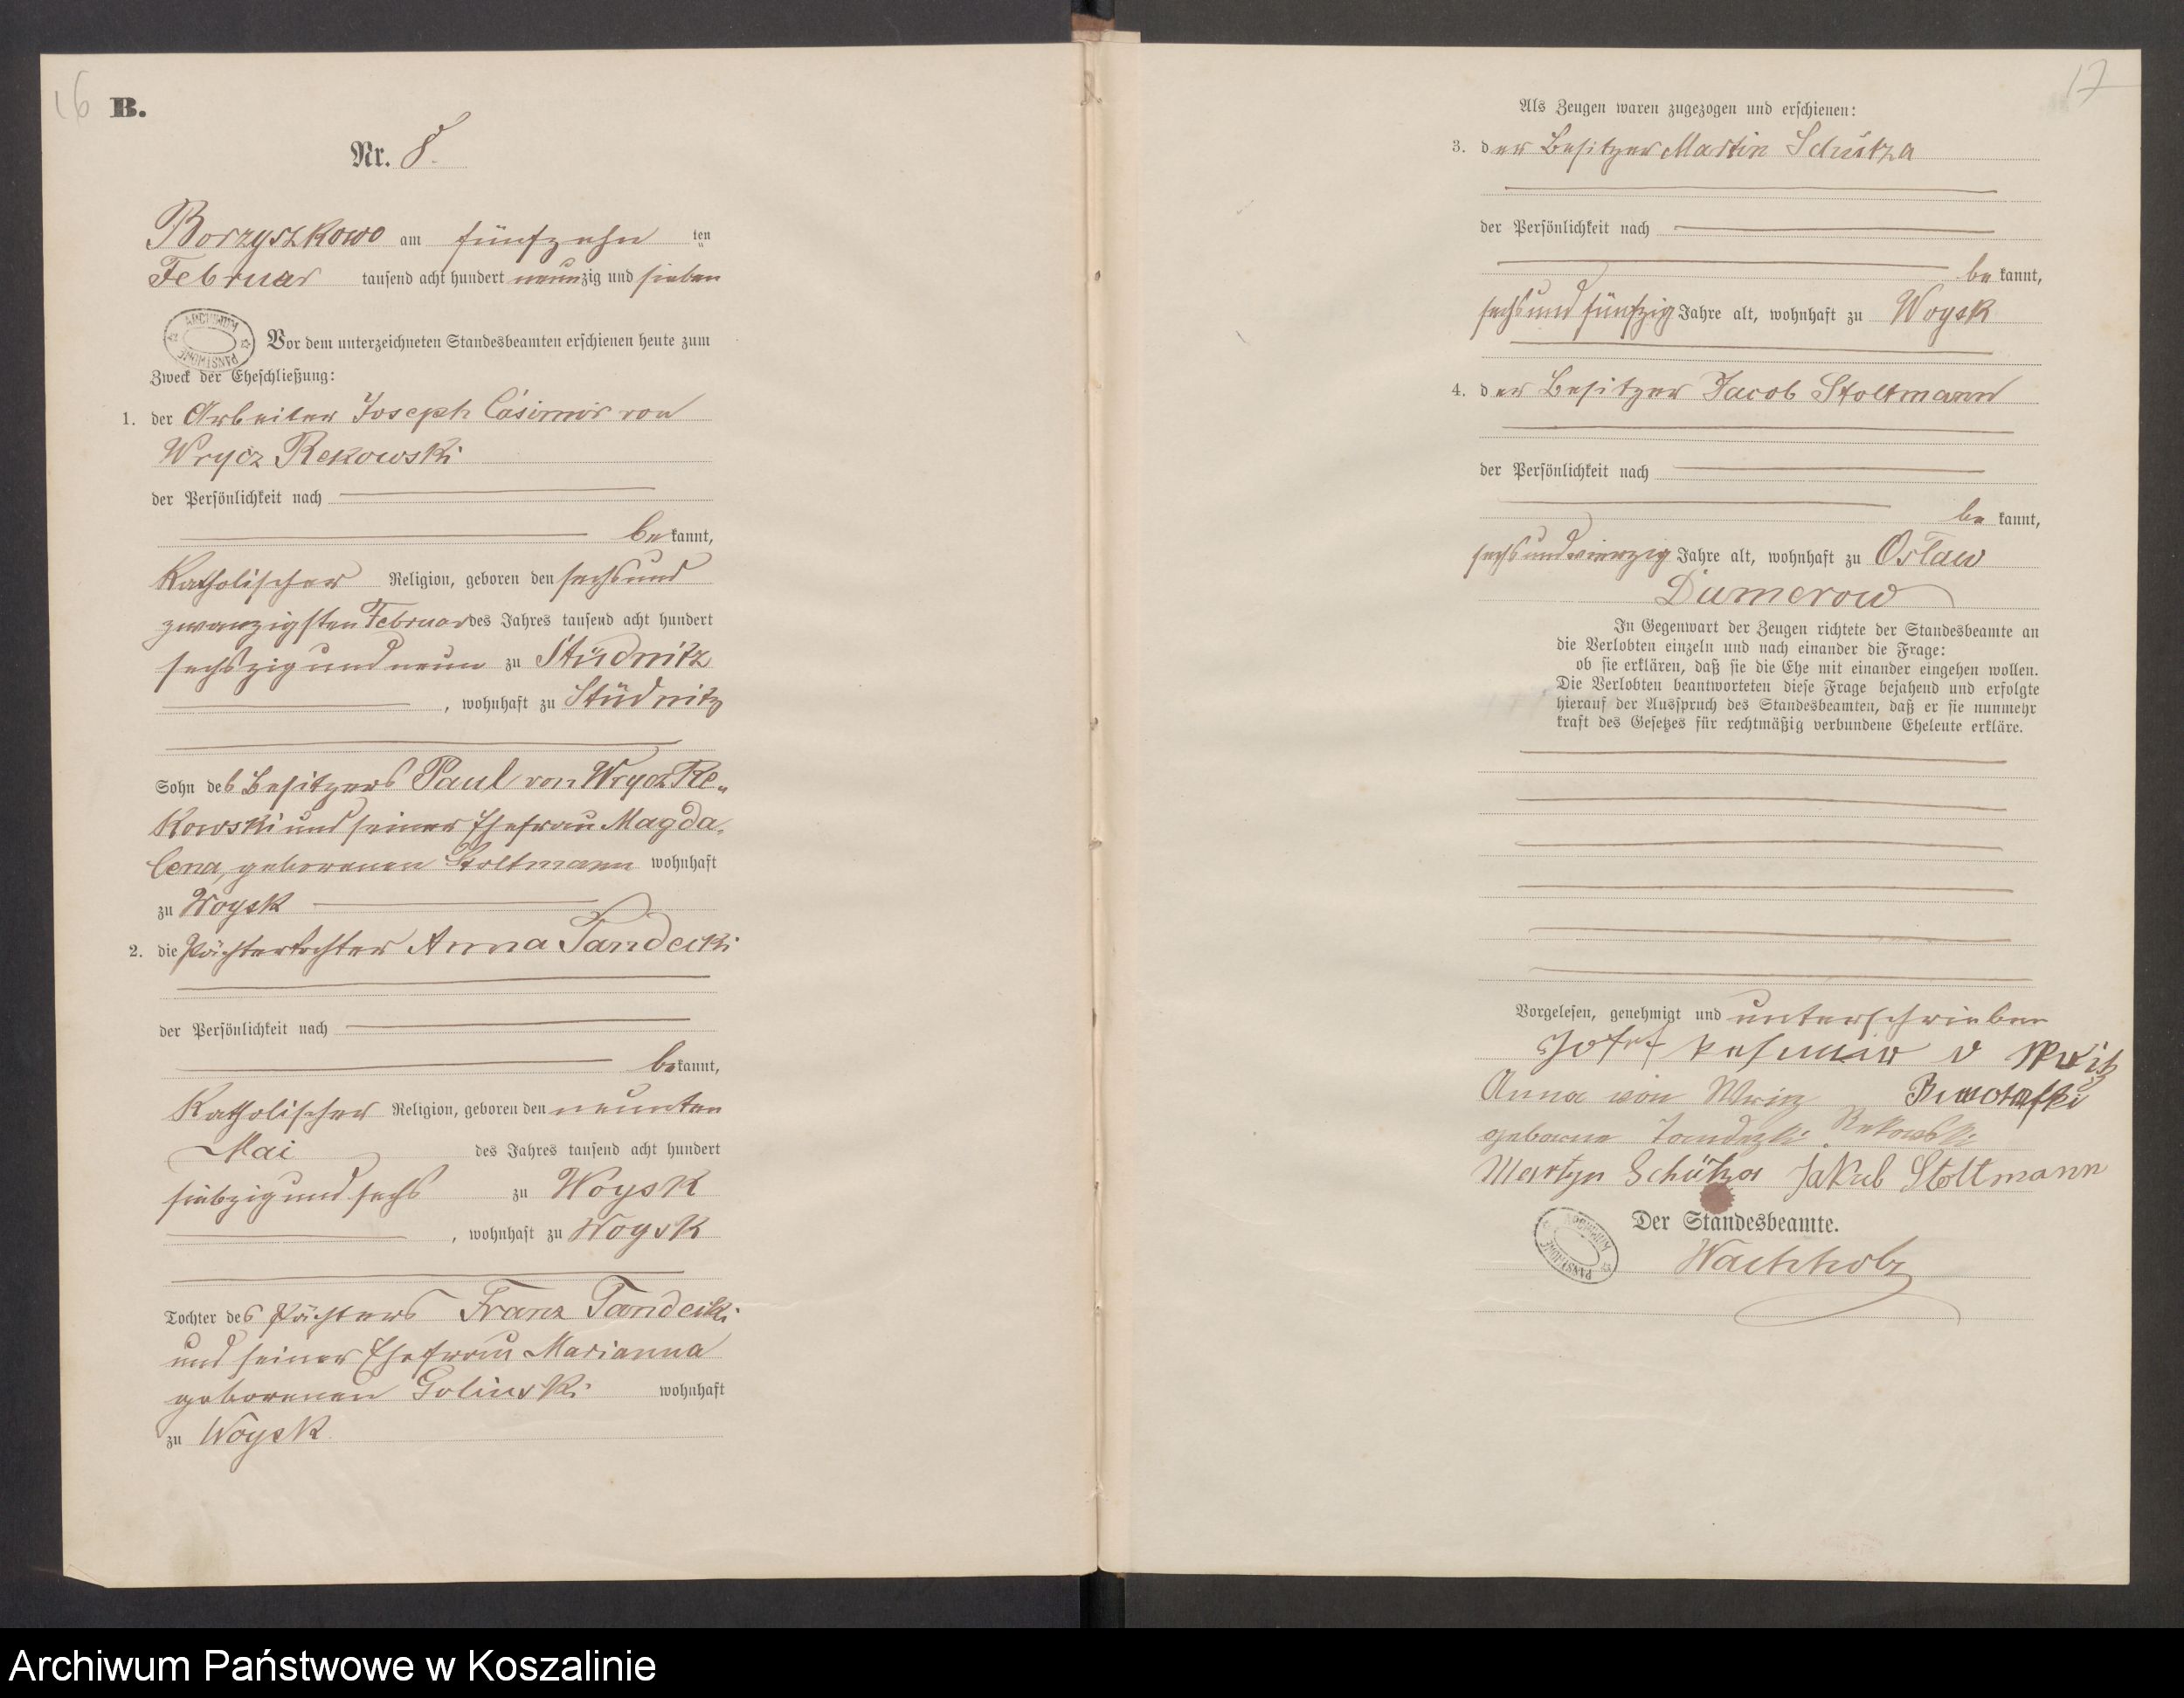 16
B.
Nr. 8.
Borzyszkowo am fünfzehn ten
Februar tausend acht hundert neunzig und sieben
ARCHIWUM PAŃSTWOWE
Vor dem unterzeichneten Standesbeamten erschienen heute zum
Zweck der Eheschließung:
1. der Arbeiter Joseph Casimir von
Wrycz Rekowski
der Persönlichkeit nach
bekannt,
Katholischer Religion, geboren den sechsund
zwanzigsten Februar des Jahres tausend acht hundert
sechszig und neun zu Stüdnitz
, wohnhaft zu Stüdnitz
Sohn des Besitzers Paul von Wrycz Re„
kowski und seiner Ehefrau Magda„
lena, geborenen Stoltmann wohnhaft
zu Woysk
2. die Pächtertochter Anna Tandecki
der Persönlichkeit nach
bekannt,
Katholischer Religion, geboren den neunten
Mai des Jahres tausend acht hundert
siebzig und sechs zu Woysk
, wohnhaft zu Woysk
Tochter des Pächters Franz Tandecki
und seiner Ehefrau Marianna
geborenen Golinski wohnhaft
zu Woysk
17
Als Zeugen waren zugezogen und erschienen:
3. der Besitzer Martin Schütza
der Persönlichkeit nach
bekannt,
sechsundfünfzig Jahre alt, wohnhaft zu Woysk
4. der Besitzer Jacob Stoltmann
der Persönlichkeit nach
bekannt,
sechsundvierzig Jahre alt, wohnhaft zu Oslaw
Dumerow
In Gegenwart der Zeugen richtete der Standesbeamte an
die Verlobten einzeln und nach einander die Frage:
ob sie erklären, daß sie die Ehe mit einander eingehen wollen.
Die Verlobten beantworteten diese Frage bejahend und erfolgte
hierauf der Ausspruch des Standesbeamten, daß er sie nunmehr
kraft des Gesetzes für rechtmäßig verbundene Eheleute erkläre.
Vorgelesen, genehmigt und unterschrieben
Josef v
Anna von Wricz
geborne Tandezki Rekowski
Martyn Schütza Jakub Stoltmann
Der Standesbeamte.
ARCHIWUM PAŃSTWOWE
Wachholz
Archiwum Państwowe w Koszalinie